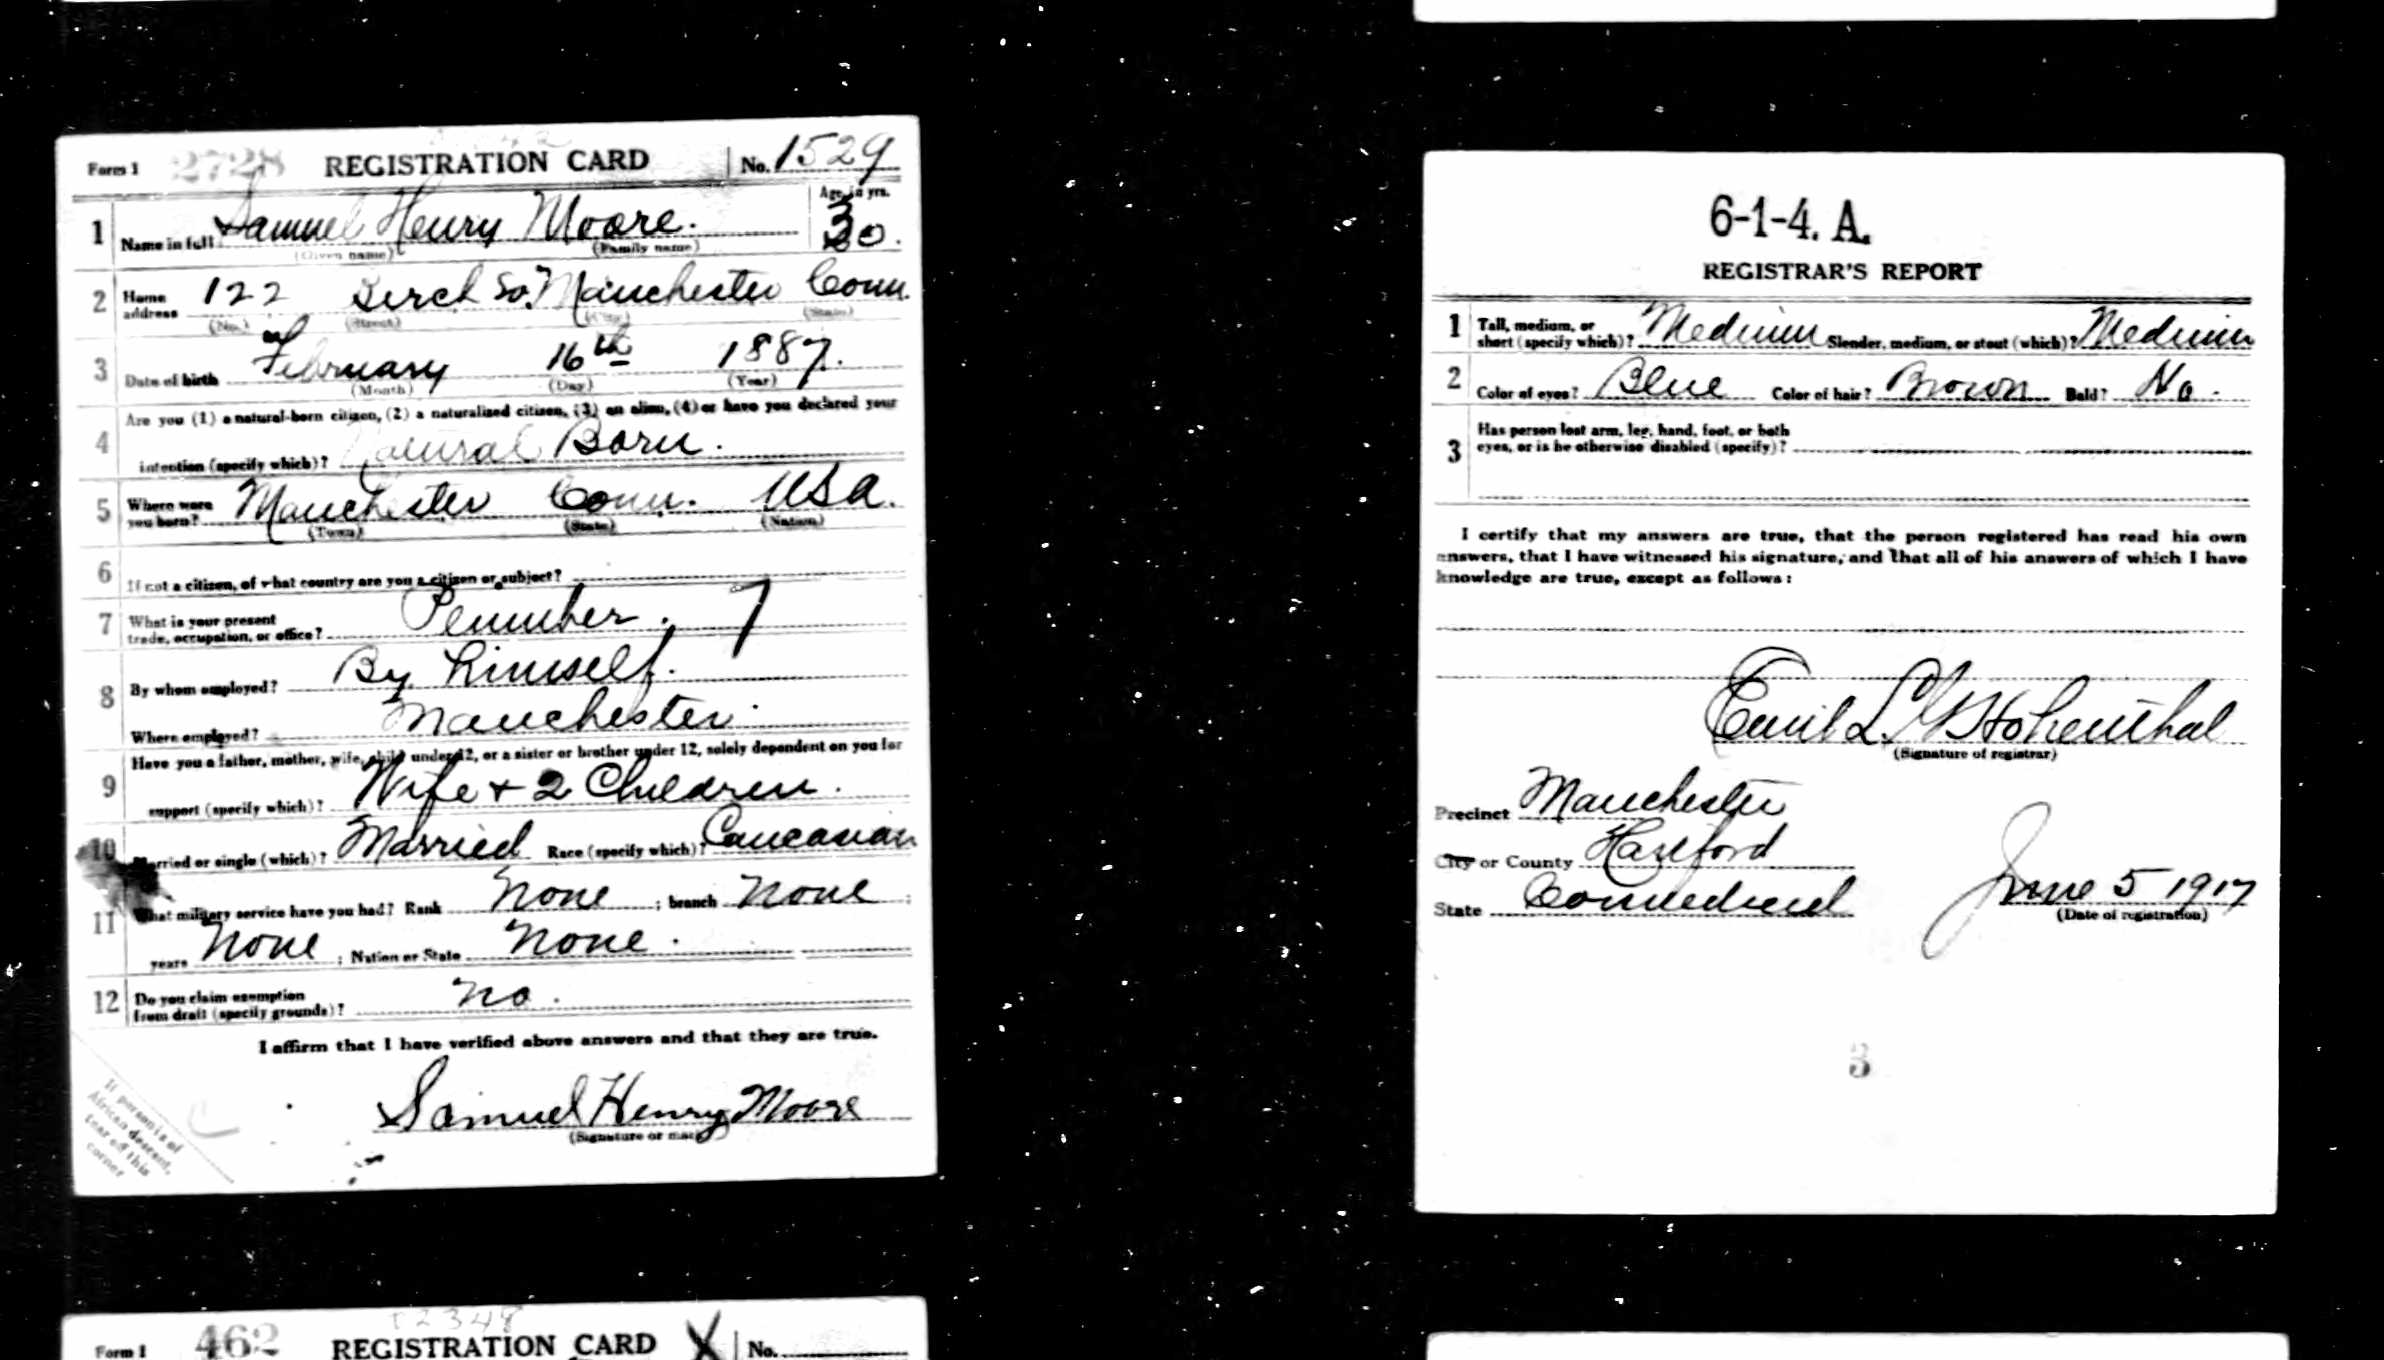 Form 1 2728 REGISTRATION CARD No. 1529
1 Name in full Samuel Henry Moore. Age, in yrs. 30.
(Given name) (Family name)
2 Home address 122 Birch So. Manchester Conn.
(No.) (Street) (City) (State)
3 Date of birth February 16th 1887.
(Month) (Day) (Year)
4 Are you (1) a natural-born citizen, (2) a naturalized citizen, (3) an alien, (4) or have you declared your
intention (specify which)? Natural Born.
5 Where were you born? Manchester Conn. USA.
(Town) (State) (Nation)
6 If not a citizen, of what country are you a citizen or subject?
7 What is your present trade, occupation, or office? Plumber. 7
8 By whom employed? By himself.
Where employed? Manchester.
9 Have you a father, mother, wife, child under 12, or a sister or brother under 12, solely dependent on you for
support (specify which)? Wife + 2 Children.
10 Married or single (which)? Married Race (specify which)? Caucasian
11 What military service have you had? Rank None ; branch None ;
years None ; Nation or State None.
12 Do you claim exemption from draft (specify grounds)? No.
I affirm that I have verified above answers and that they are true.
Samuel Henry Moore
(Signature or mark)
If person is of
African descent,
tear off this
corner
Form 1 462 12348 REGISTRATION CARD X No.
6-1-4. A.
REGISTRAR'S REPORT
1 Tall, medium, or short (specify which)? Medium Slender, medium, or stout (which)? Medium
2 Color of eyes? Blue Color of hair? Brown Bald? No.
3 Has person lost arm, leg, hand, foot, or both
eyes, or is he otherwise disabled (specify)?
I certify that my answers are true, that the person registered has read his own
answers, that I have witnessed his signature, and that all of his answers of which I have
knowledge are true, except as follows:
Emil L. G. Hohenthal
(Signature of registrar)
Precinct Manchester
City or County Hartford
State Connecticut
June 5 1917
(Date of registration)
3